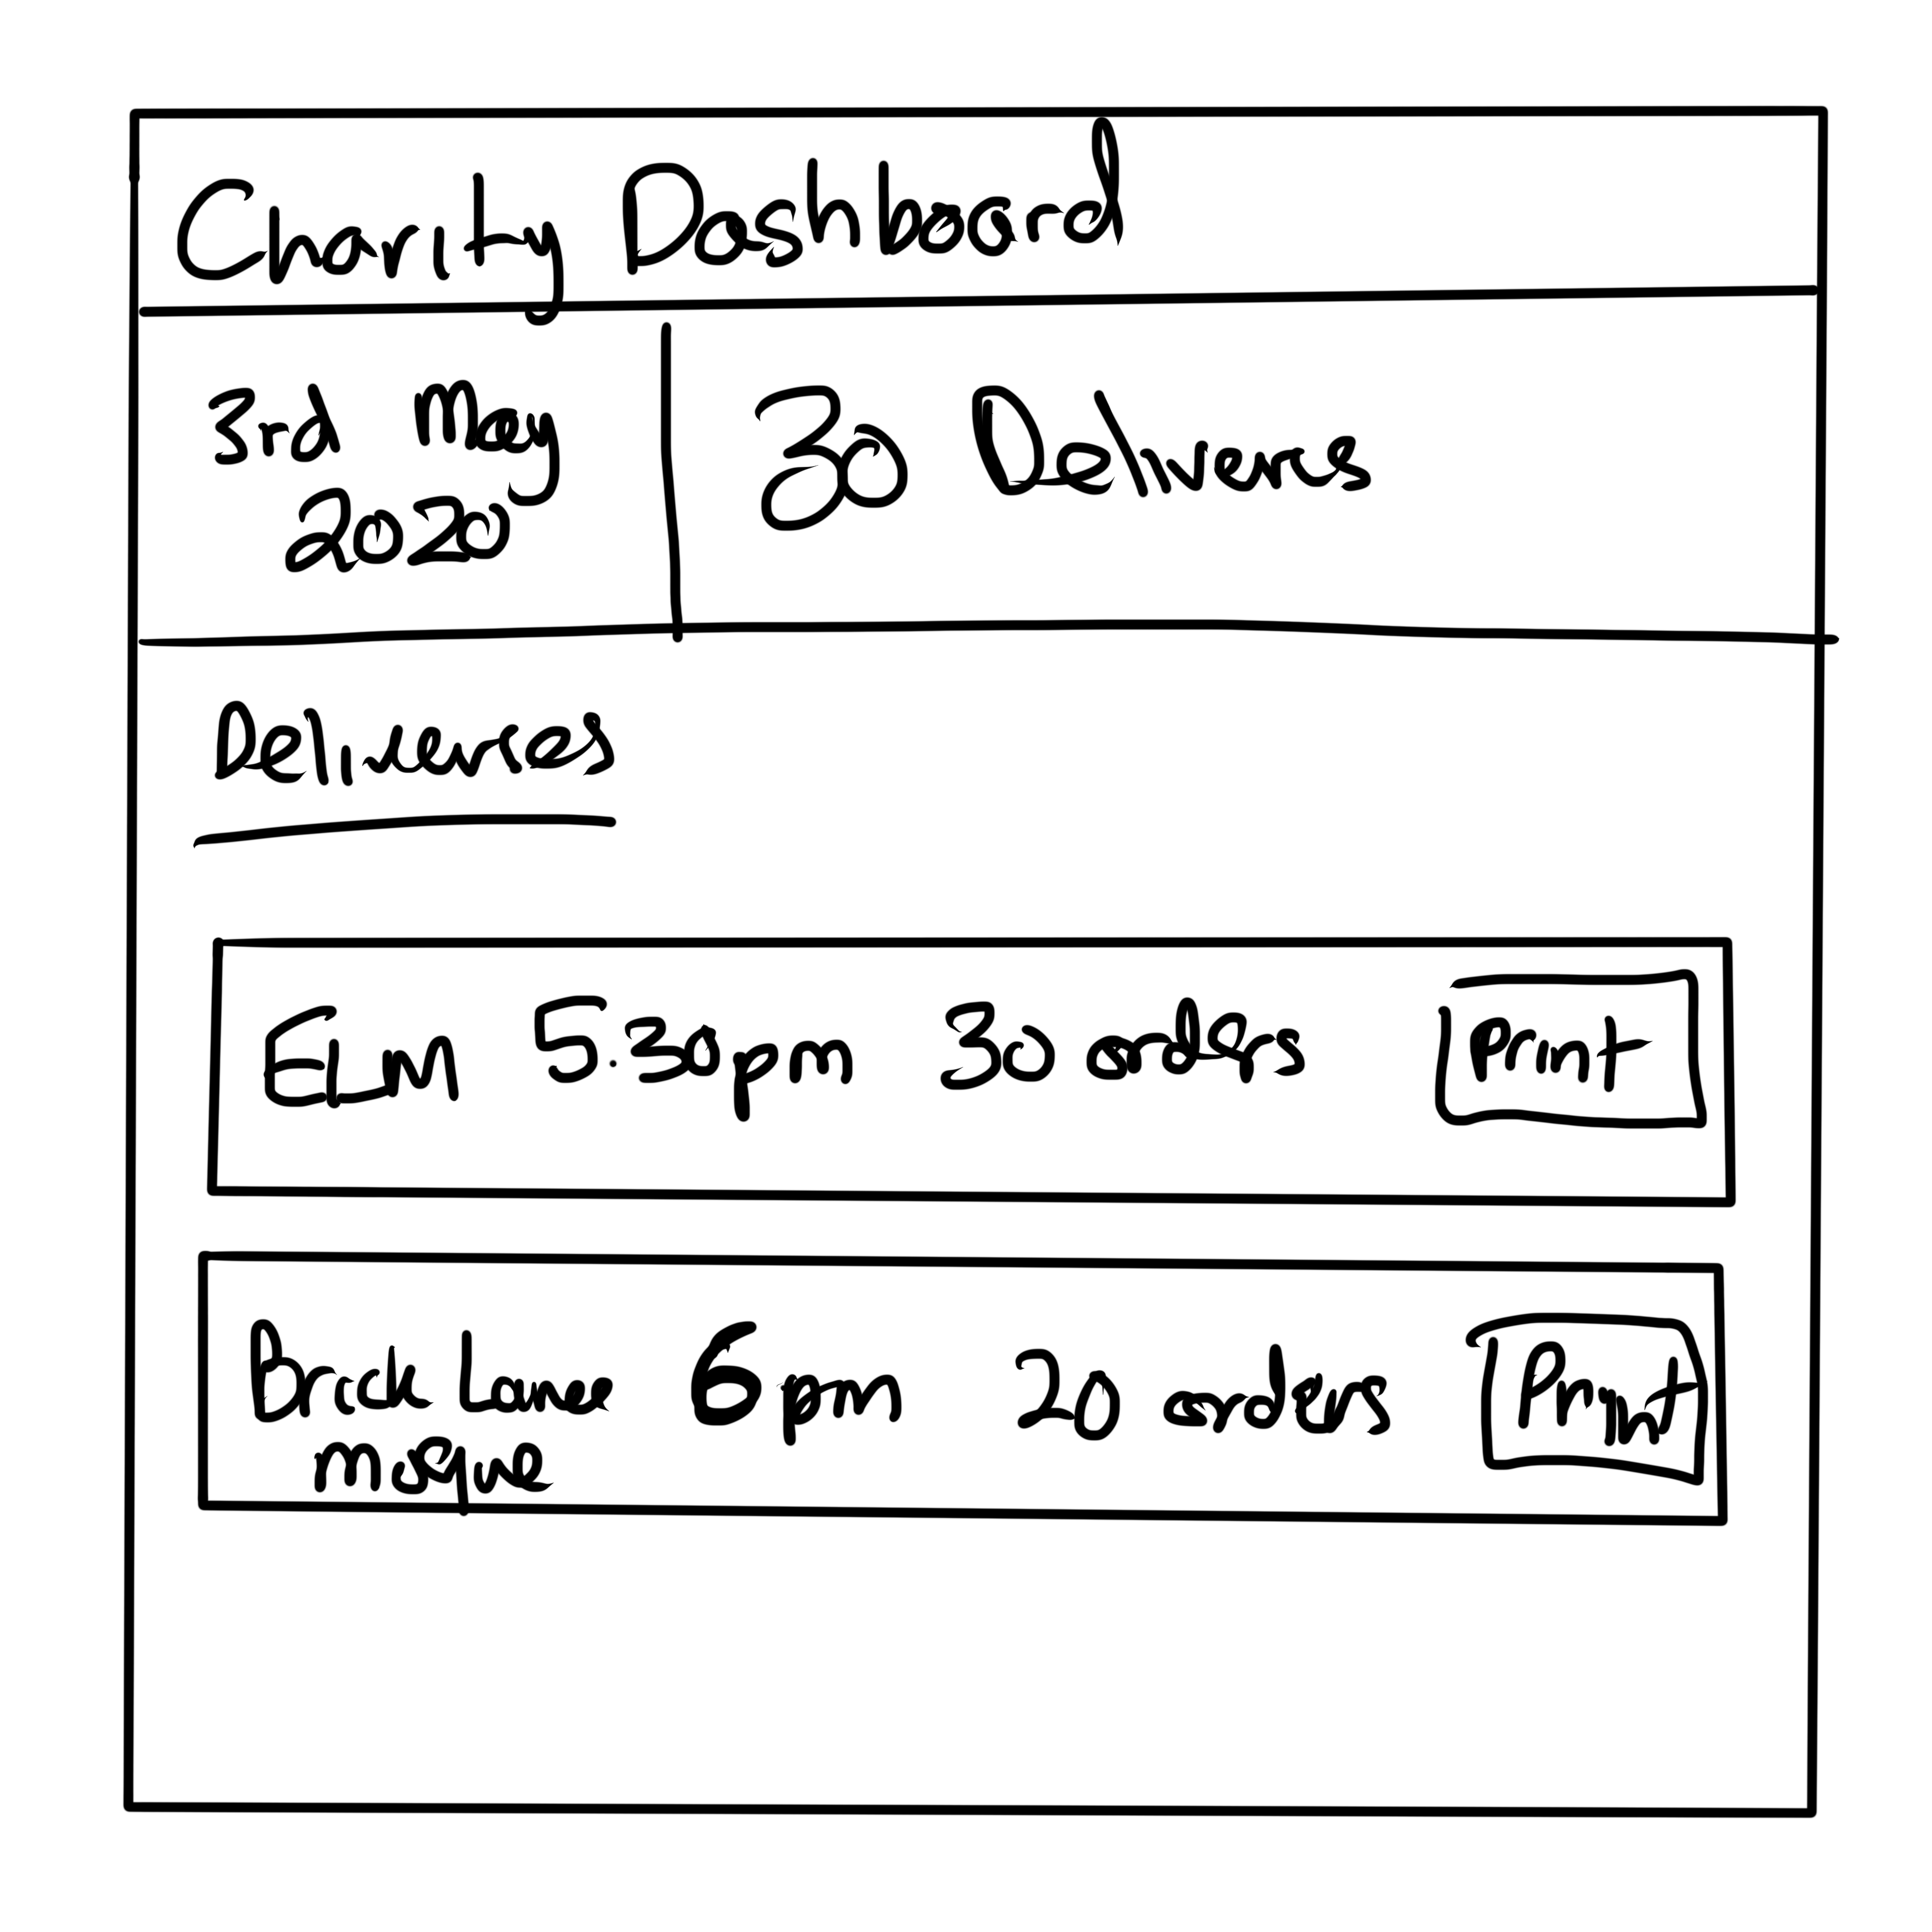 Charity Dashboard
3rd May
2020
30 Delivers
Deliveries
Elm 5:30pm 30 orders Print
brick Lane 6pm 20 orders Print
mosque